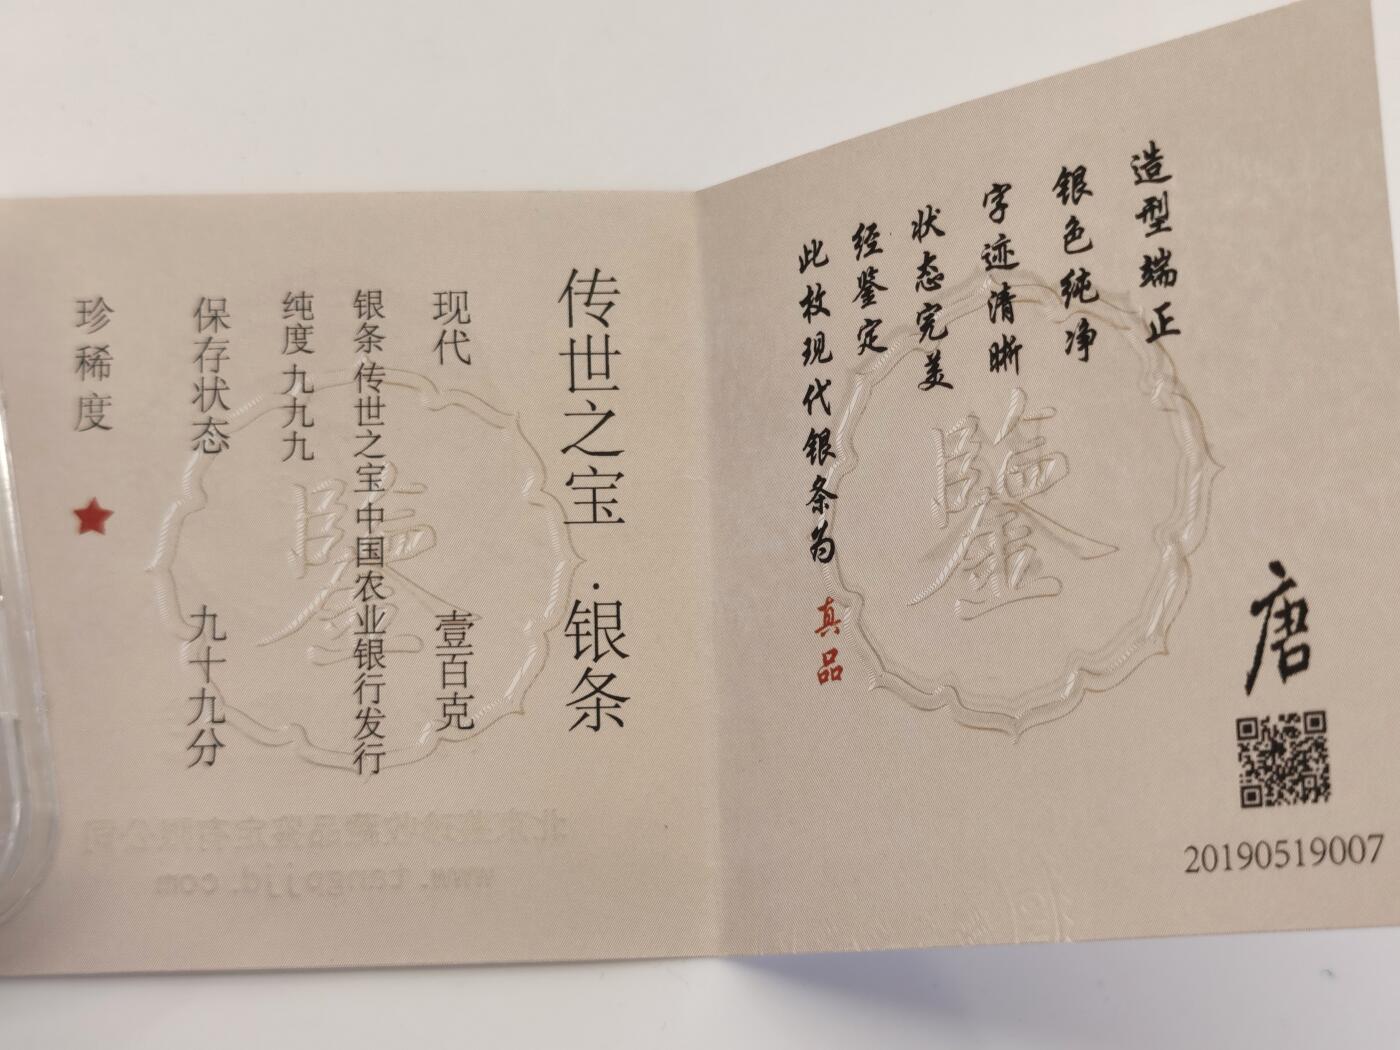 造型端正
银色纯净
字迹清晰
状态完美
经鉴定
此枚现代银条为 真品
唐
20190519007
传世之宝·银条
现代 壹百克
银条传世之宝中国农业银行发行
纯度九九九
保存状态 九十九分
珍稀度 ★
鑒
鑒
www.tangpjjd.com